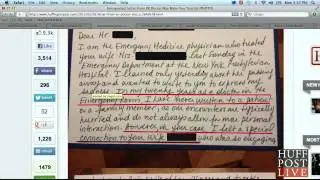 Dear Mr.
I am the Emergency Medicine physician who treated
your wife Mrs. last Sunday in the
Emergency Department at the New York Presbyterian
Hospital. I learned only yesterday about her passing
away and wanted to write to you to express my
sadness. In my twenty years as a doctor in the
Emergency Room, I have never written to a patient
or a family member, as our encounters are typically
hurried and do not always allow for more personal
interaction. However, in your case, I felt a special
connection to your wife who was so engaging
HUFF
POST
LIVE